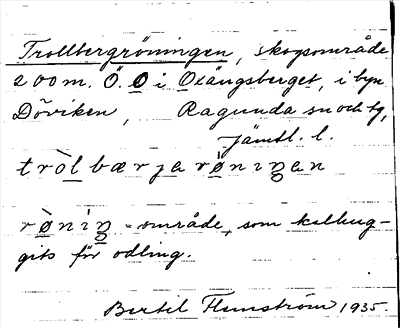 Trollbergröningen, skogsområde
200 m. Ö. O i Oxängsberget, i byn
Döviken, Ragunda sn och tg,
Jämtl. l.
tròlbærjarøningan
røning = område, som kalhug-
gits för odling.
Bertil Flemström 1935.